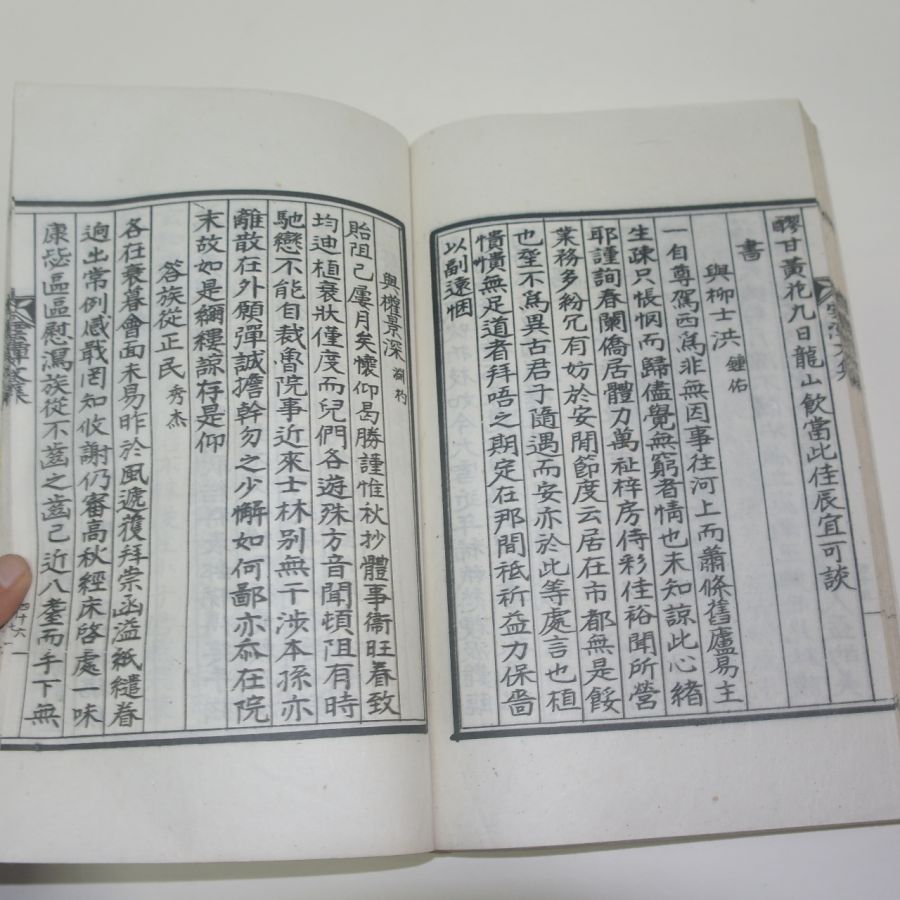 醪甘黃花九日龍山飮當此佳辰宜可談
書
與柳士洪 鍾佑
一自尊駕西爲非無因事往河上而蕭條舊廬易主
生疎只悵惘而歸儘覺無窮者情也未知諒此心緖
耶謹詢春闌僑居體力萬祉梓房侍彩佳裕聞所營
業務多紛冗有妨於安閒節度云居在市都無是餒
也奎不爲異古君子隨遇而安亦於此等處言也植
憒憒無足道者拜唔之期定在那間祗祈益力保嗇
以副遠悃
與權景深
貽阻已屢月矣懷仰曷勝謹惟秋抄體事衞旺春致
均迪植衰狀僅度而兒們各遊殊方音聞頓阻有時
馳戀不能自裁魯院事近來士林別無干涉本孫亦
離散在外願彈誠擔幹勿之少懈如何鄙亦忝在院
末故如是綢縷諒存是仰
答族從正民 秀杰
各在衰暮會面未易昨於風遞獲拜崇函溢紙繾眷
逈出常例感戢罔知攸謝仍審高秋經床啓處一味
康毖區區慰瀉族從不齒之齒已近八耋而手下無
四十六